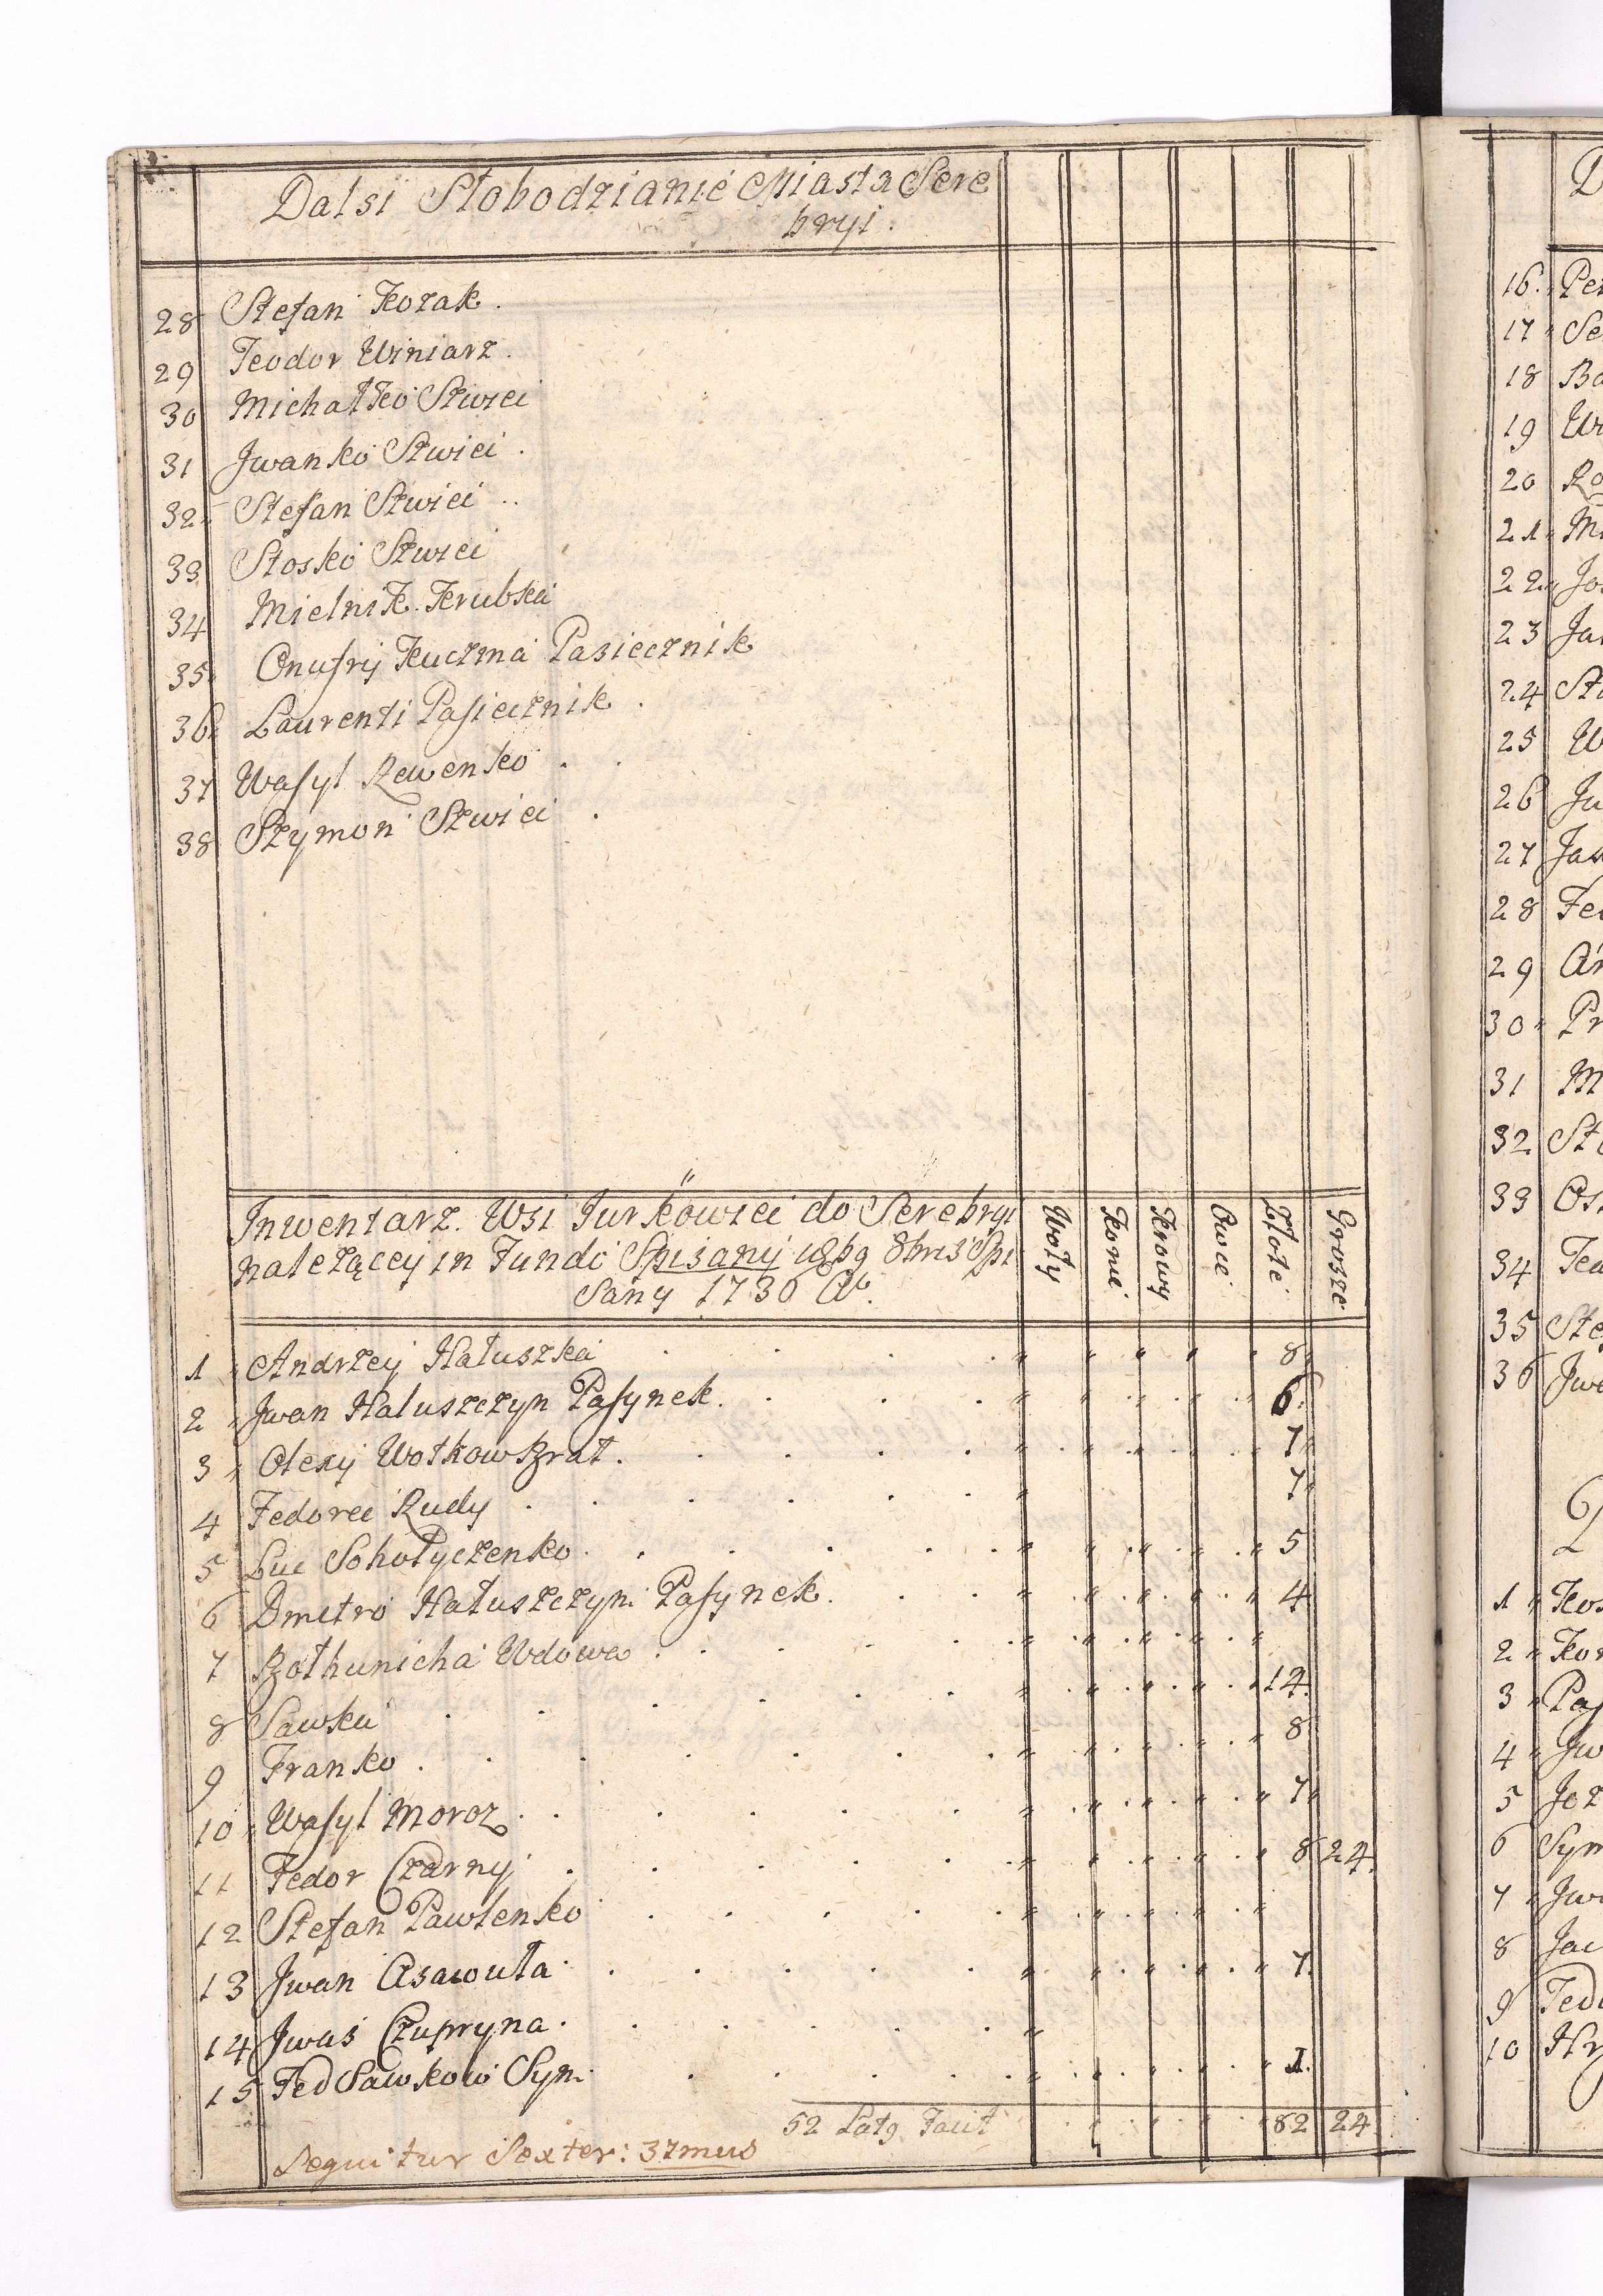 Dalsi Słobodzianie Miasta Sere
bryi.
28 Stefan Kozak.
29 Teodor Winiarz.
30 Michałko Szwiec
31 Jwanko Szwiec.
32 Stefan Szwiec
33 Stosko Szwiec
34 Mielnik Krubka
35 Onufry Kuczma Pasiecznik
36 Laurenti Pasiecznik.
37 Wasyl Rewenko.
38 Szymon Szwiec.
Inwentarz. Wsi Jurkowiec do Serebryi Woły Konie Krowy Owce Złote Grosze
należącey in Fundo Spisany 8bris Spi
sany 1736 Ao.
1 Andrzey Hałuszka 8
2 Jwan Haluszczyn Pasynek. 6.
3 Olexy Wołkow Brat. 7
4 Fedorec Rudy 7
5 Luc Sohołyczenko 5
6 Dmetro Hałuszczyn Pasynek. 4
7 Bołhunicha Wdowa
8 Sawka 14.
9 Franko. 8
10 Wasyl Moroz. 7
11 Fedor Czarny 8 24.
12 Stefan Pawlenko
13 Jwan Asawuła 7.
14 Jwas Czupryna.
15 Fed Sawkow Syn. 1.
52 Latg Facit 82 24
Sequitur Sexter: 37mus
16. Pe
17 Se
18 Ba
19 W
20 Ro
21 M
22 Jo
23 Ja
24 St
25 W
26 Ju
27 Jas
28 Fe
29 An
30 Pr
31 M
32 St
33 Os
34 Fe
35 Ste
36 Jw
1 Kos
2 Kor
3 Pas
4 Jw
5 Joz
6 Sym
7 Jw
8 Jac
9 Fed
10 Hr